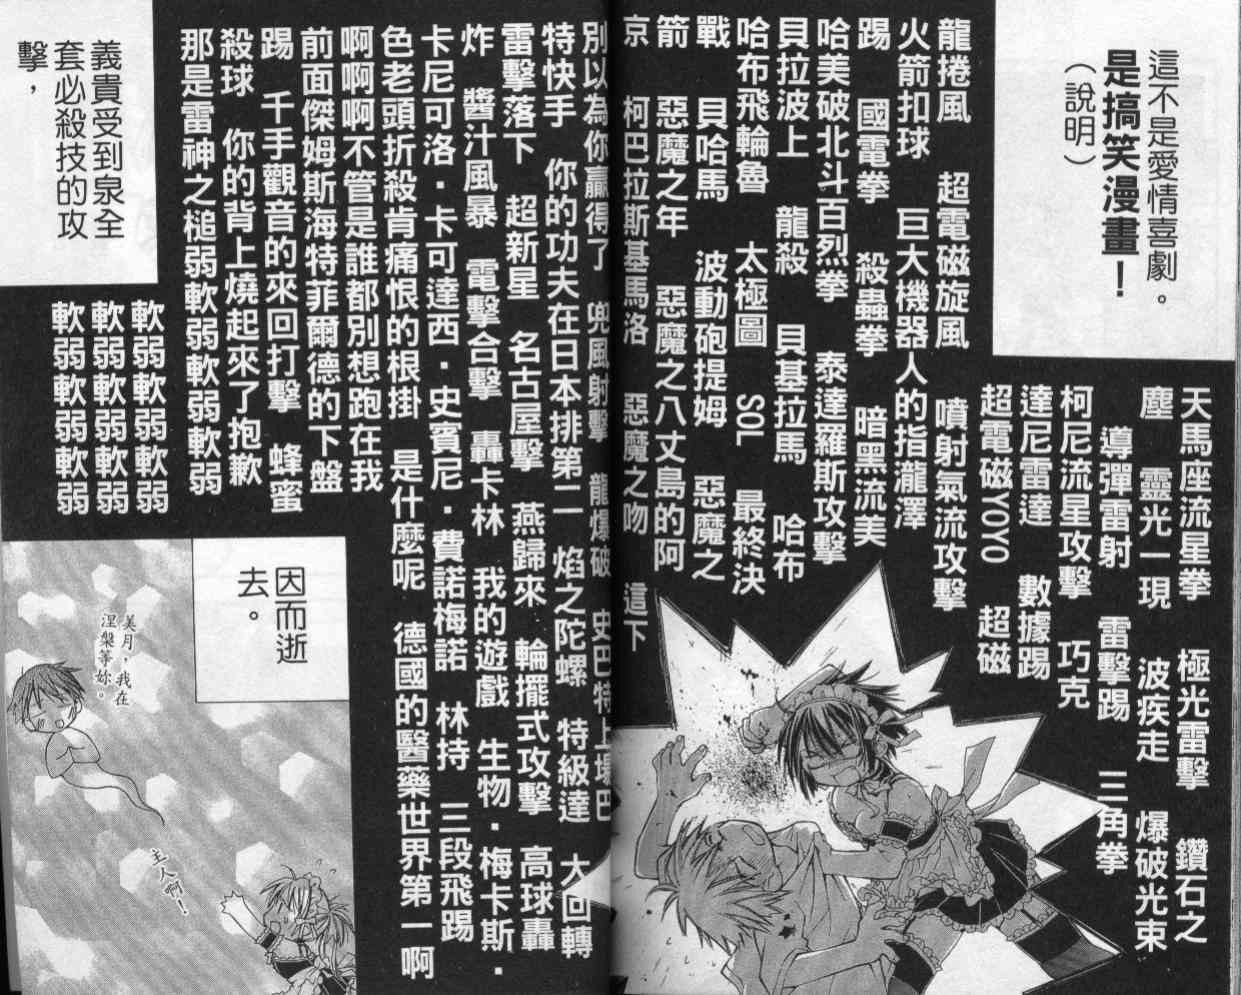 這不是愛情喜劇。
是搞笑漫畫！
（說明）
天馬座流星拳　極光雷擊　鑽石之
塵　靈光一現　波疾走　爆破光束
導彈雷射　雷擊踢　三角拳
柯尼流星攻擊　巧克
達尼雷達　數據踢
超電磁YOYO　超磁
龍捲風　超電磁旋風　噴射氣流攻擊
火箭扣球　巨大機器人的指瀧澤
踢　國電拳　殺蟲拳　暗黑流美
哈美破北斗百烈拳　泰達羅斯攻擊
貝拉波上　龍殺　貝基拉馬　哈布
哈布飛輪魯　太極圖　SOL　最終決
戰　貝哈馬　波動砲提姆　惡魔之
箭　惡魔之年　惡魔之八丈島的阿
京　柯巴拉斯基馬洛　惡魔之吻　這下
別以為你贏得了　兜風射擊　龍爆破　史巴特上場巴
特快手　你的功夫在日本排第二　焰之陀螺　特級達　大回轉
雷擊落下　超新星　名古屋擊　燕歸來　輪擺式攻擊　高球轟
炸　醬汁風暴　電擊合擊　轟卡林　我的遊戲　生物．梅卡斯．
卡尼可洛．卡可達西．史賓尼．費諾梅諾　林持　三段飛踢
色老頭折殺肯痛恨的根掛　是什麼呢　德國的醫藥世界第一啊
啊啊啊啊不管是誰都別想跑在我
前面傑姆斯海特菲爾德的下盤
踢　千手觀音的來回打擊　蜂蜜
殺球　你的背上燒起來了抱歉
那是雷神之槌弱軟弱軟弱軟弱
軟弱軟弱軟弱
軟弱軟弱軟弱
軟弱軟弱軟弱
義貴受到泉全
套必殺技的攻
擊，
因而逝
去。
美月，我在
涅槃等妳。
主人啊！